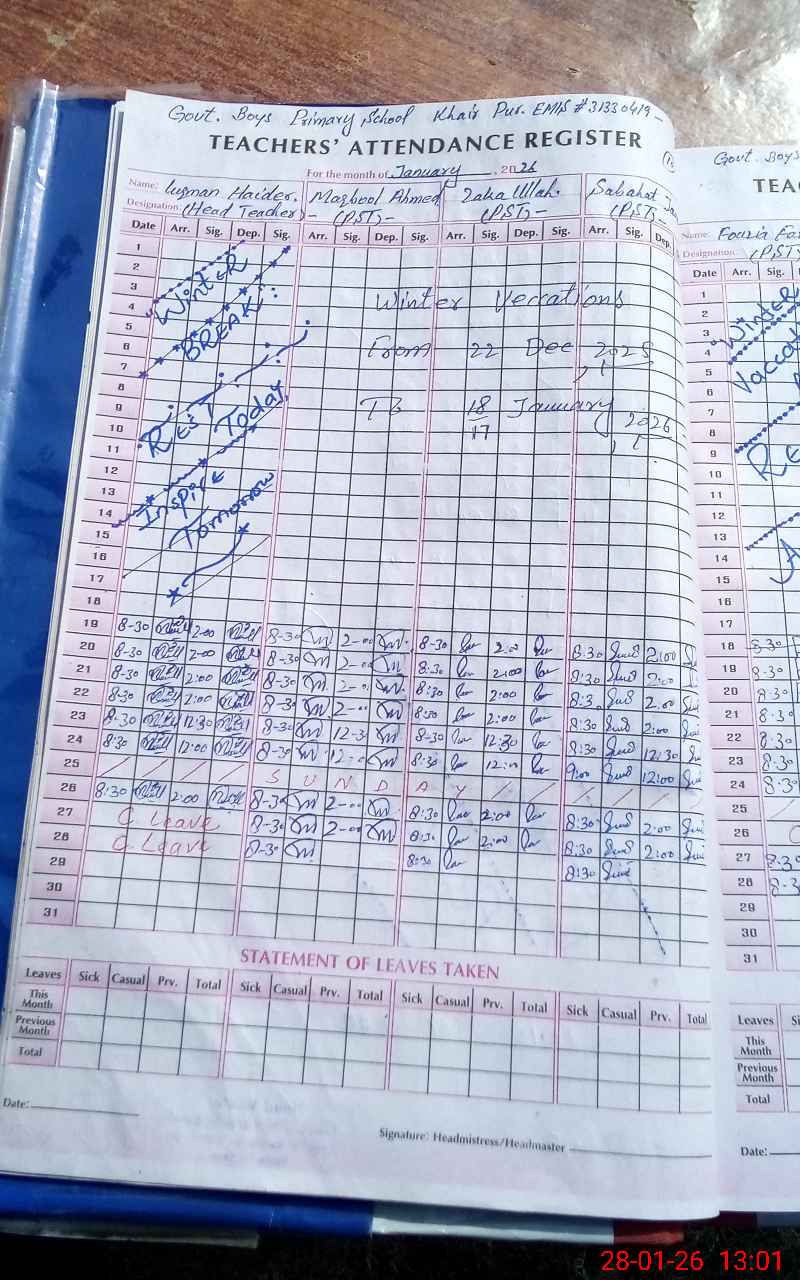 Govt. Boys Primary School Khair Pur. EMIS #31330419-
TEACHERS' ATTENDANCE REGISTER
For the month of January, 2026
Name: Luqman Haider. Maqbool Ahmed Zaka Ullah. Sabahat
Designation: (Head Teacher) - (PST)- (PST)- (PST)-
Date Arr. Sig. Dep. Sig. Arr. Sig. Dep. Sig. Arr. Sig. Dep. Sig. Arr. Sig. Dep.
1
2
3
4
5
6
7
8
9
10
11
12
13
14
15
16
17
18
"WINTER
BREAK:
REST Today,
Inspire
Tomorrow
Winter Veccations
From 22 Dec 2025
To 18/17 January 2026
19 8-30 2:00 8-30 2-00 8-30 2:00 8:30 2:00
20 8-30 2-00 8-30 2-00 8:30 2:00 8:30 2:00
21 8-30 2:00 8-30 2-00 8:30 2:00 8:30 2:00
22 8-30 2:00 8-30 2-00 8:30 2:00 8:30 2:00
23 8-30 12:30 8-30 12-30 8-30 12:30 8:30 12:30
24 8:30 12:00 8-30 12:00 8:30 12:00 9:00 12:00
25 S U N D A Y
26 8:30 2:00 8-30 2-00 8:30 2:00 8:30 2:00
27 C. Leave 8-30 2-00 8:30 2:00 8:30 2:00
28 C. Leave 8-30 8:30 8:30
29
30
31
STATEMENT OF LEAVES TAKEN
Leaves Sick Casual Prv. Total Sick Casual Prv. Total Sick Casual Prv. Total Sick Casual Prv. Total
This Month
Previous Month
Total
Date:
Signature: Headmistress/Headmaster
Govt. Boys
TEA
Name: Fouzia
Designation: (PST)
Date Arr. Sig.
1
2
3
4
5
6
7
8
9
10
11
12
13
14
15
16
17
"WINTER
Vaccat
18 8-30
19 8-30
20 8:30
21 8-30
22 8:30
23 8:30
24 8:30
25
26
27 8:30
28 8-30
29
30
31
Leaves
This Month
Previous Month
Total
Date:
28-01-26 13:01